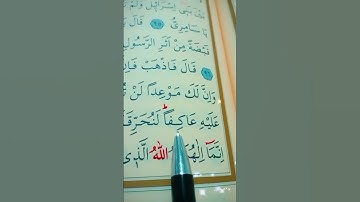 بَنِي إِسْرَائِيلَ وَلَمْ
يَا سَامِرِيُّ ﴿٩٥﴾ قَالَ
قَبْضَةً مِنْ اَثَرِ الرَّسُولِ
﴿٩٦﴾ قَالَ فَاذْهَبْ فَاِنَّ
وَاِنَّ لَكَ مَوْعِدًا لَنْ
عَلَيْهِ عَاكِفًا لَنُحَرِّقَ
اِنَّمَٓا اِلٰهُ اللّٰهُ الَّذِي